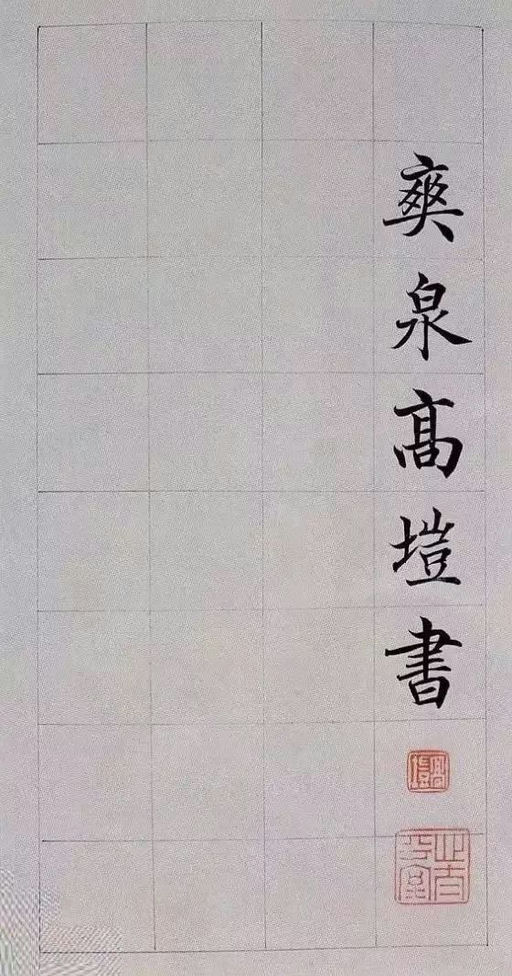 爽泉高塏書